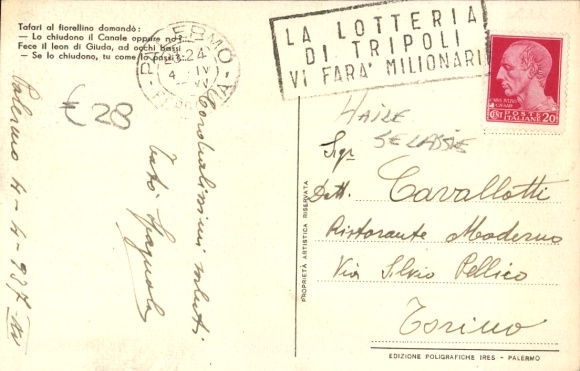 Tafari al fiorellino domandò:
— Lo chiudono il Canale oppure no? —
Fece il leon di Giuda, ad occhi bassi
— Se lo chiudono, tu come lo passi? —
€ 28
PALERMO
23.24
4 IV
LA LOTTERIA
DI TRIPOLI
VI FARA' MILIONARI
POSTE
ITALIANE
CENT 20
HAILE
SELASSIE
Sigr
Dott. Cavallotti
Ristorante Moderno
Via Silvio Pellico
Torino
Cordialissimi saluti
Palermo 4-4-937-XV
PROPRIETÀ ARTISTICA RISERVATA
EDIZIONE POLIGRAFICHE IRES - PALERMO